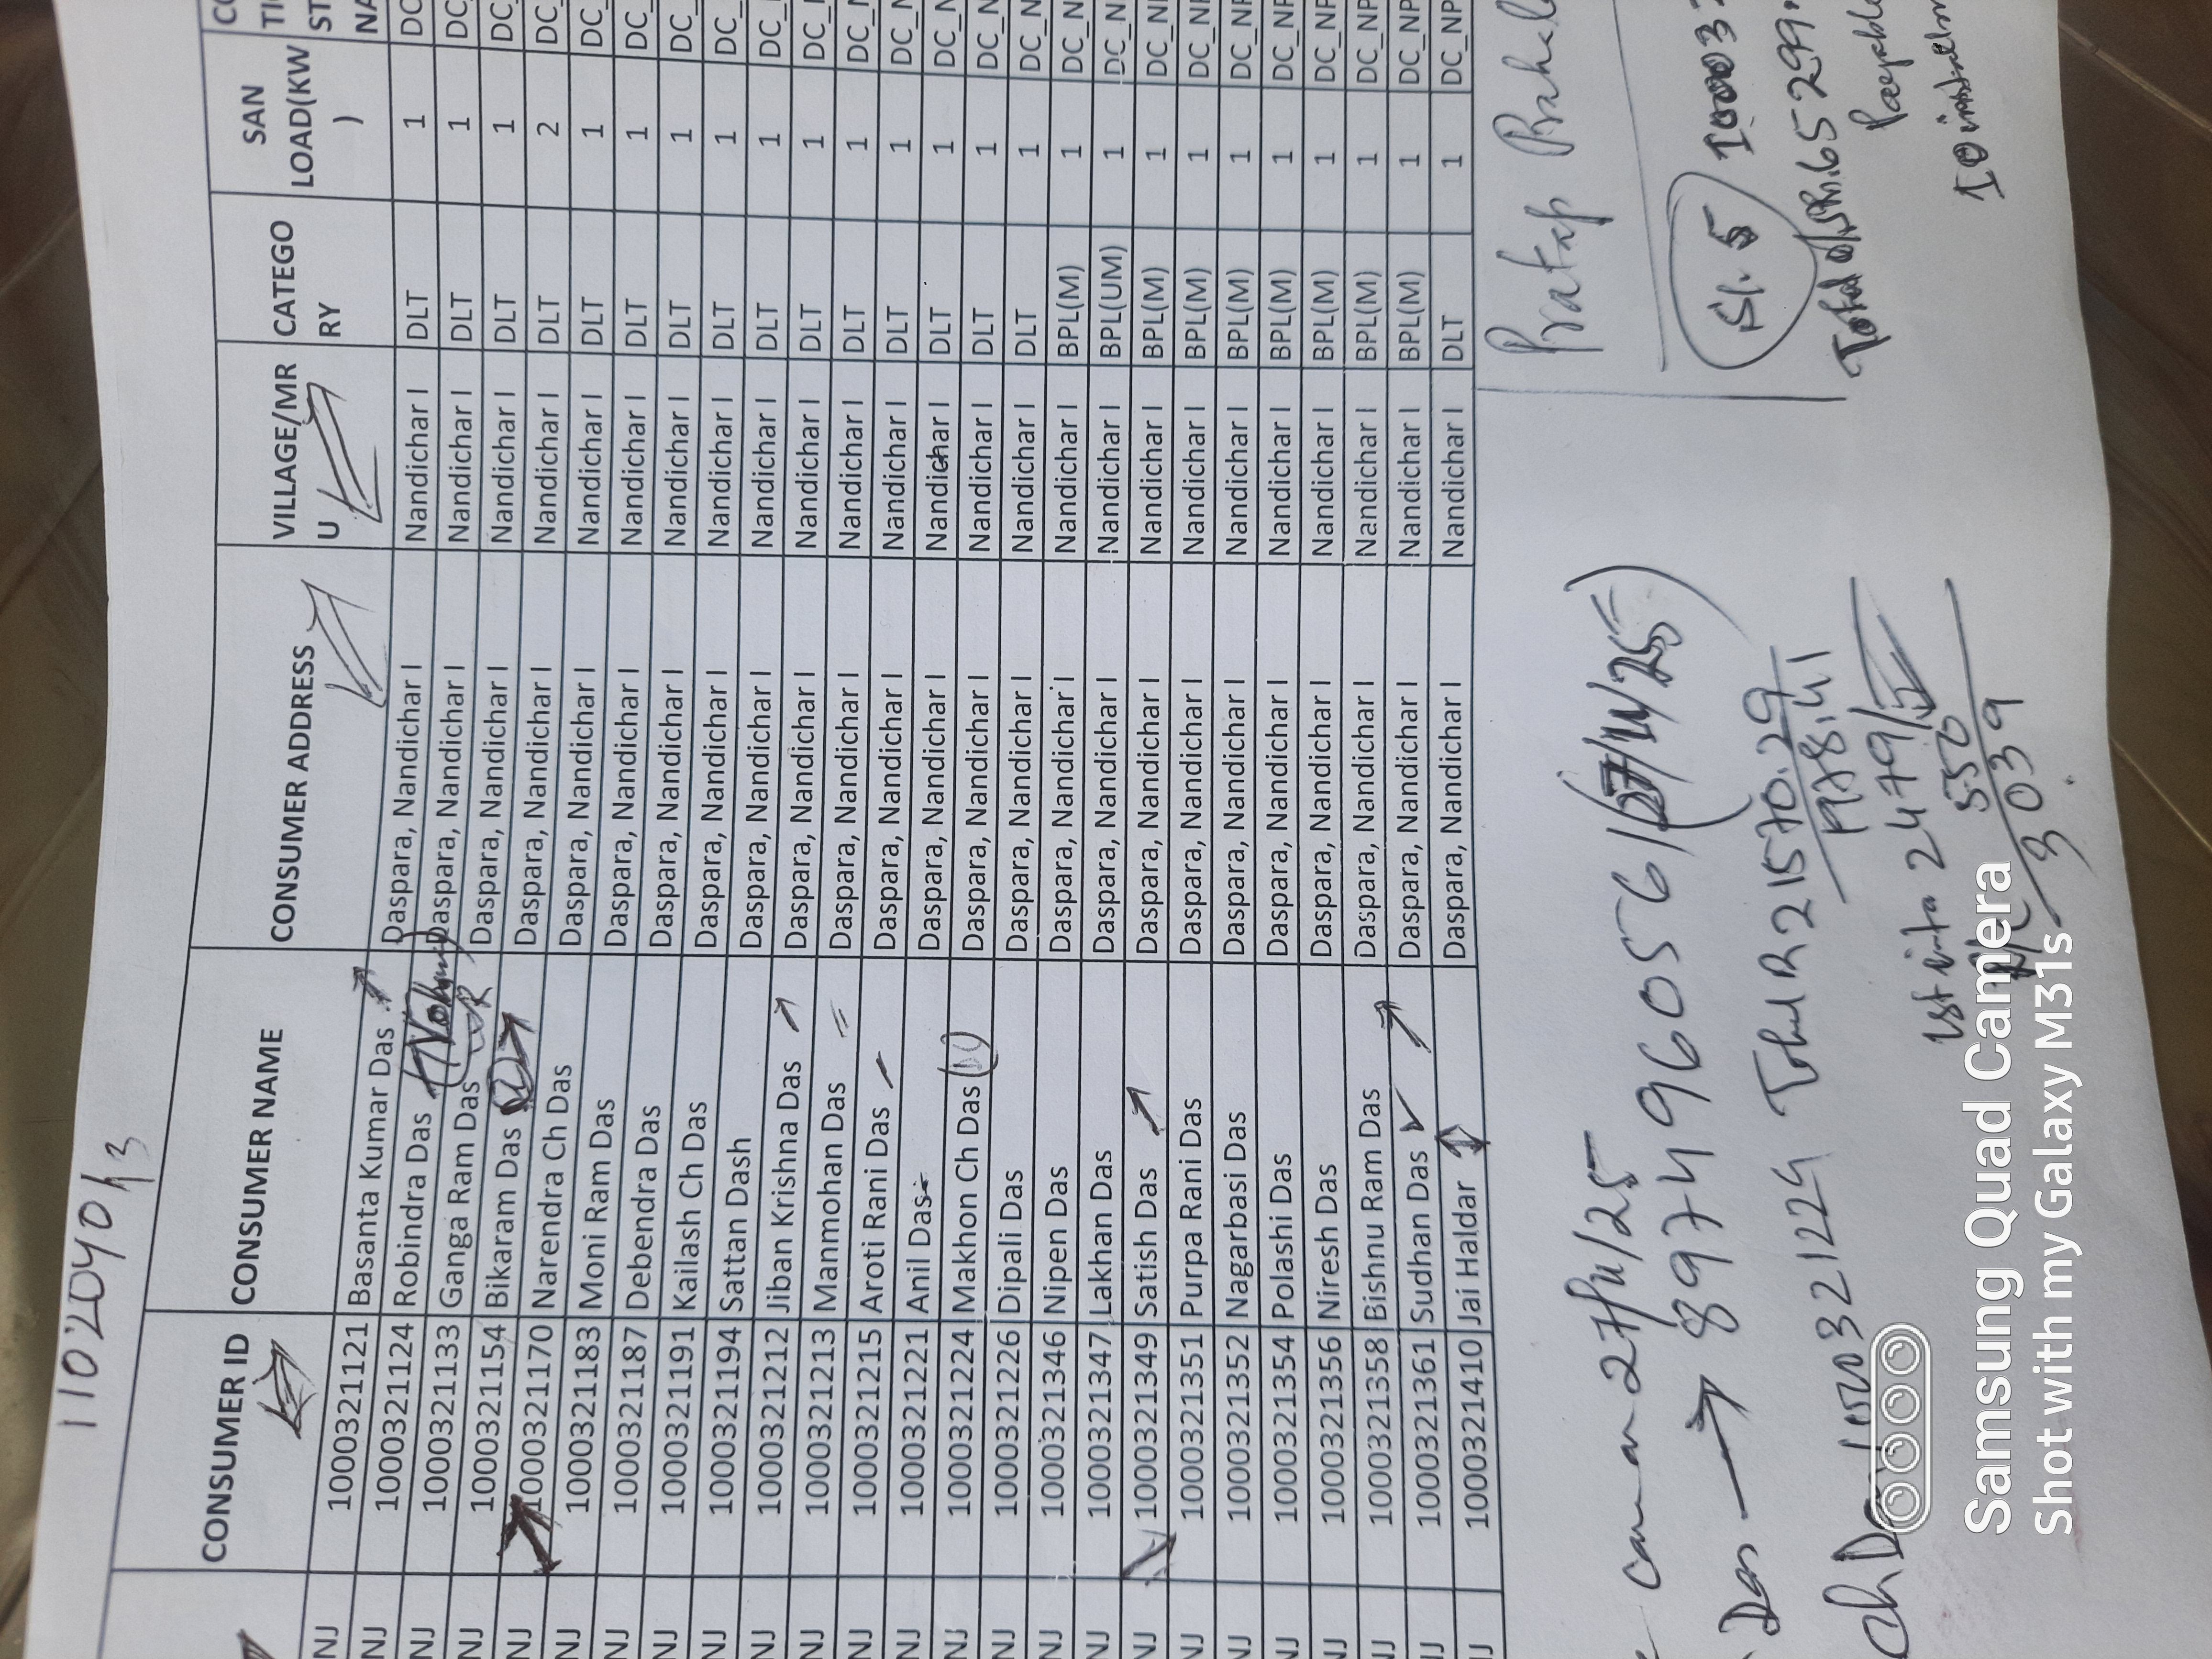 1102040
CONSUMER ID CONSUMER NAME CONSUMER ADDRESS VILLAGE/MRU CATEGORY SAN LOAD(KW)
NJ 1000321121 Basanta Kumar Das Daspara, Nandichar I Nandichar I DLT 1 DC
NJ 1000321124 Robindra Das Daspara, Nandichar I Nandichar I DLT 1 DC_
NJ 1000321133 Ganga Ram Das Daspara, Nandichar I Nandichar I DLT 1 DC_
NJ 1000321154 Bikaram Das Daspara, Nandichar I Nandichar I DLT 2 DC_
NJ 1000321170 Narendra Ch Das Daspara, Nandichar I Nandichar I DLT 1 DC_
NJ 1000321183 Moni Ram Das Daspara, Nandichar I Nandichar I DLT 1 DC_
NJ 1000321187 Debendra Das Daspara, Nandichar I Nandichar I DLT 1 DC_
NJ 1000321191 Kailash Ch Das Daspara, Nandichar I Nandichar I DLT 1 DC_
NJ 1000321194 Sattan Dash Daspara, Nandichar I Nandichar I DLT 1 DC_
NJ 1000321212 Jiban Krishna Das Daspara, Nandichar I Nandichar I DLT 1 DC_
NJ 1000321213 Manmohan Das Daspara, Nandichar I Nandichar I DLT 1 DC_N
NJ 1000321215 Aroti Rani Das Daspara, Nandichar I Nandichar I DLT 1 DC_N
NJ 1000321221 Anil Das Daspara, Nandichar I Nandichar I DLT 1 DC_N
NJ 1000321224 Makhon Ch Das Daspara, Nandichar I Nandichar I DLT 1 DC_N
NJ 1000321226 Dipali Das Daspara, Nandichar I Nandichar I DLT 1 DC_N
NJ 1000321346 Nipen Das Daspara, Nandichar I Nandichar I BPL(M) 1 DC_N
NJ 1000321347 Lakhan Das Daspara, Nandichar I Nandichar I BPL(UM) 1 DC_N
NJ 1000321349 Satish Das Daspara, Nandichar I Nandichar I BPL(M) 1 DC_NF
NJ 1000321351 Purpa Rani Das Daspara, Nandichar I Nandichar I BPL(M) 1 DC_NF
NJ 1000321352 Nagarbasi Das Daspara, Nandichar I Nandichar I BPL(M) 1 DC_NF
NJ 1000321354 Polashi Das Daspara, Nandichar I Nandichar I BPL(M) 1 DC_NF
NJ 1000321356 Niresh Das Daspara, Nandichar I Nandichar I BPL(M) 1 DC_NF
NJ 1000321358 Bishnu Ram Das Daspara, Nandichar I Nandichar I BPL(M) 1 DC_NP
NJ 1000321361 Sudhan Das Daspara, Nandichar I Nandichar I BPL(M) 1 DC_NP
NJ 1000321410 Jai Haldar Daspara, Nandichar I Nandichar I DLT 1 DC_NP
Pratap
Das 8974960561
Sl. 5
21570.29
2479
550
3039
Samsung Quad Camera
Shot with my Galaxy M31s